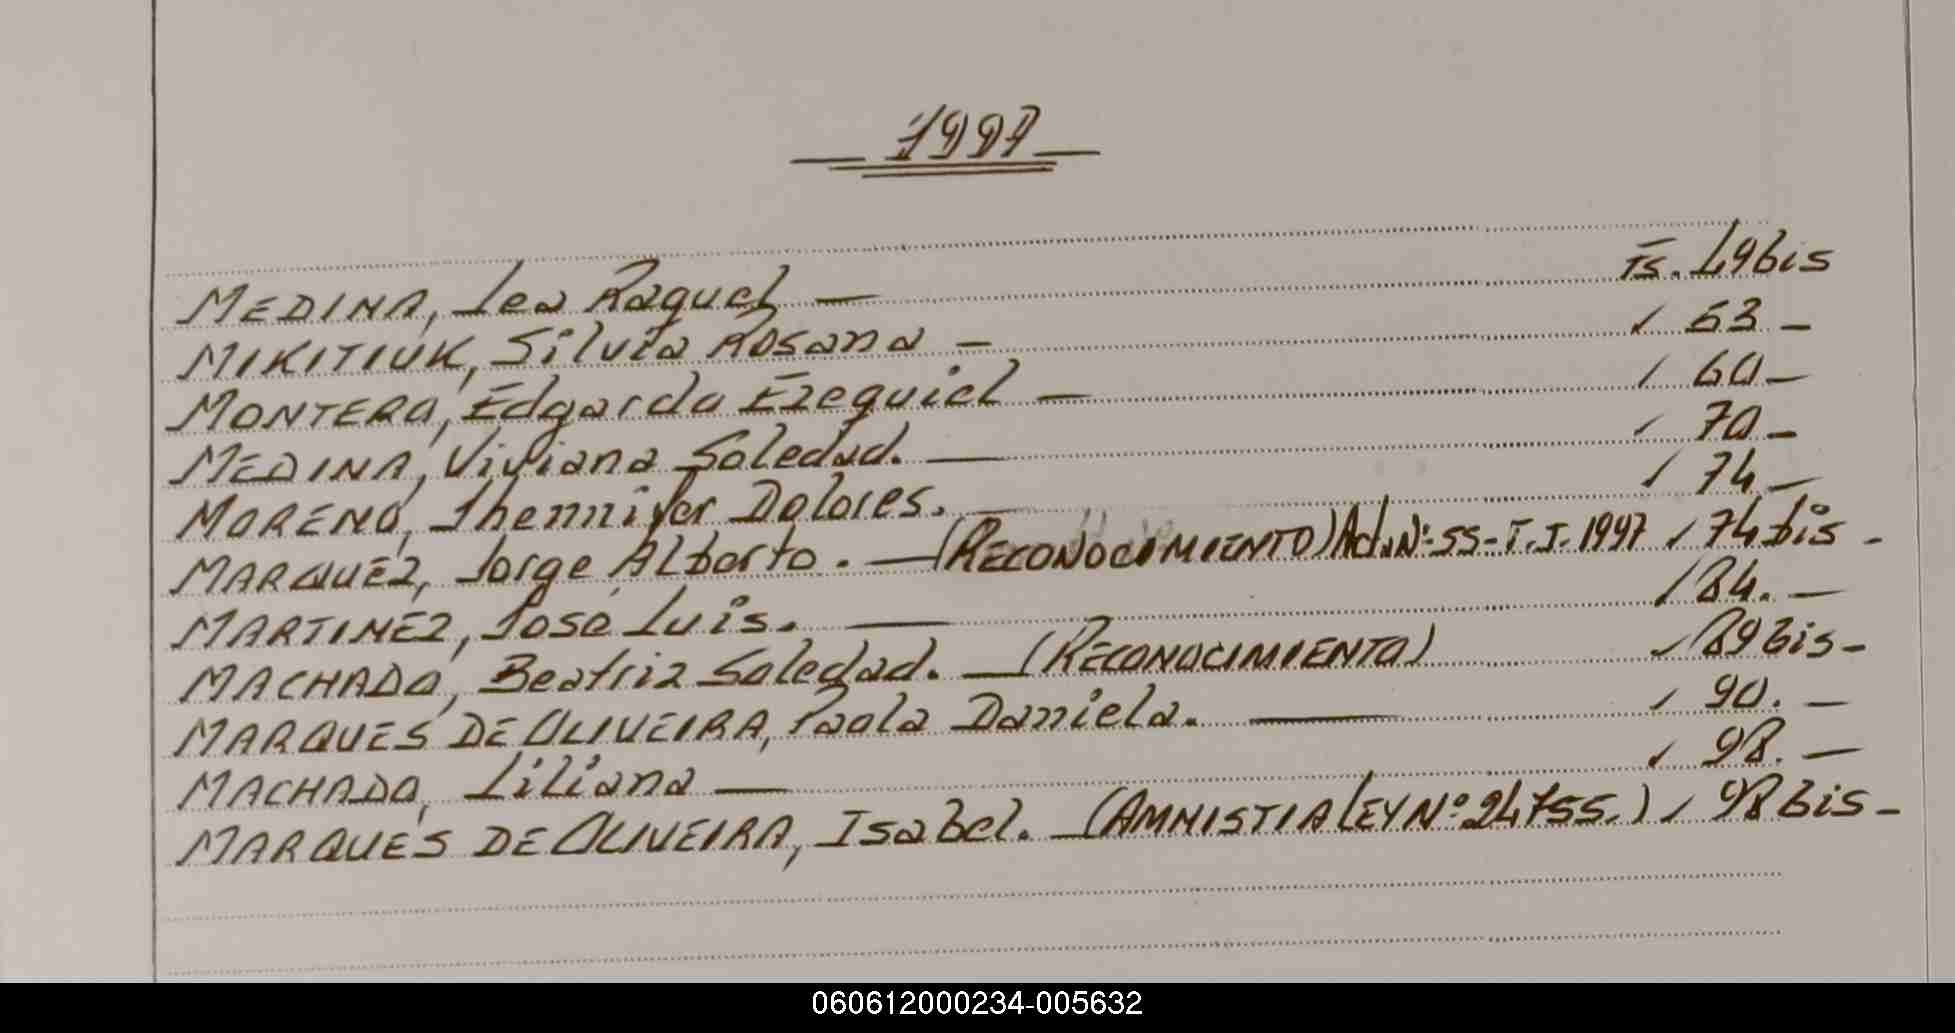 1997
MEDINA, Lea Raquel — Fs. 49 bis
MIKITIUK, Silvia Rosana — / 53 —
MONTERO, Edgardo Ezequiel — / 60 —
MEDINA, Viviana Soledad. — / 70 —
MORENO, Jhennifer Dolores. — / 74 —
MARQUEZ, Jorge Alberto. — (RECONOCIMIENTO) Act. Nº 55 - T. I. 1997 / 74 bis —
MARTINEZ, José Luis. — / 84. —
MACHADO, Beatriz Soledad. — (RECONOCIMIENTO) / 89 bis —
MARQUES DE OLIVEIRA, Paola Daniela. — / 90. —
MACHADO, Liliana — / 98. —
MARQUES DE OLIVEIRA, Isabel. — (AMNISTIA LEY Nº 24755.) / 98 bis —
060612000234-005632